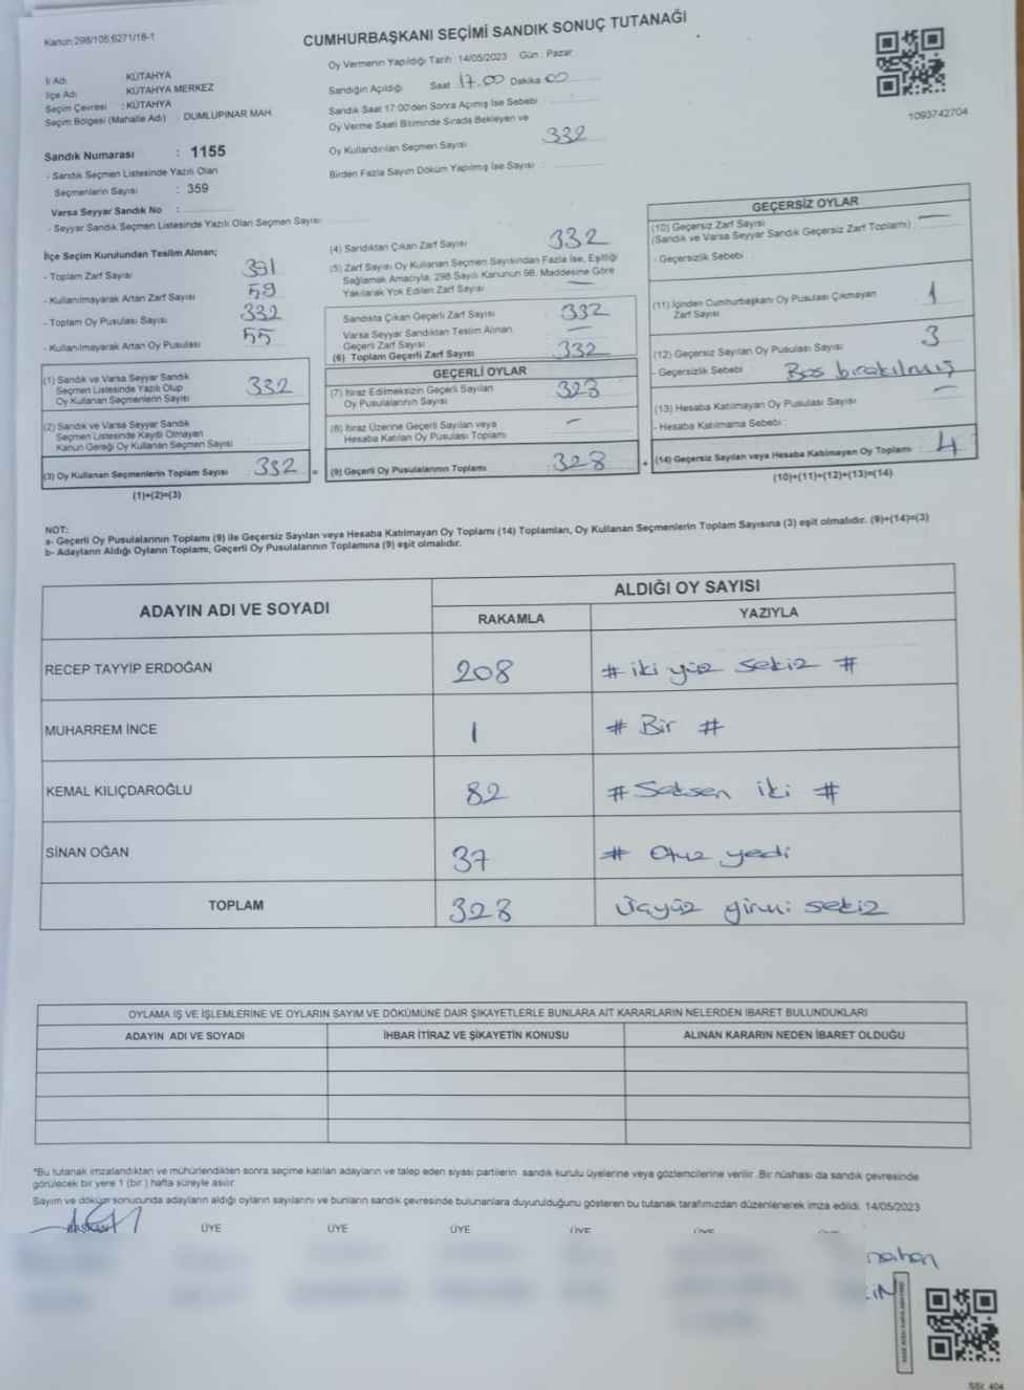 Kanun:298/105;6271/18-1
CUMHURBAŞKANI SEÇİMİ SANDIK SONUÇ TUTANAĞI
İl Adı : KÜTAHYA
İlçe Adı : KÜTAHYA MERKEZ
Seçim Çevresi : KÜTAHYA
Seçim Bölgesi (Mahalle Adı) : DUMLUPINAR MAH.
Oy Vermenin Yapıldığı Tarih : 14/05/2023 Gün : Pazar
Sandığın Açıldığı Saat 17.00 Dakika 00
Sandık Saat 17:00'den Sonra Açmış İse Sebebi
Oy Verme Saati Bitiminde Sırada Bekleyen ve
Oy Kullandırılan Seçmen Sayısı 332
Birden Fazla Sayım Döküm Yapılmış İse Sayısı :
1093742704
Sandık Numarası : 1155
- Sandık Seçmen Listesinde Yazılı Olan
Seçmenlerin Sayısı : 359
Varsa Seyyar Sandık No :
- Seyyar Sandık Seçmen Listesinde Yazılı Olan Seçmen Sayısı
İlçe Seçim Kurulundan Teslim Alınan;
- Toplam Zarf Sayısı 391
- Kullanılmayarak Artan Zarf Sayısı 59
- Toplam Oy Pusulası Sayısı 332
- Kullanılmayarak Artan Oy Pusulası 55
(1) Sandık ve Varsa Seyyar Sandık
Seçmen Listesinde Yazılı Olup
Oy Kullanan Seçmenlerin Sayısı 332
(2) Sandık ve Varsa Seyyar Sandık
Seçmen Listesinde Kayıtlı Olmayan
Kanun Gereği Oy Kullanan Seçmen Sayısı
(3) Oy Kullanan Seçmenlerin Toplam Sayısı 332 =
(1)+(2)=(3)
(4) Sandıktan Çıkan Zarf Sayısı 332
(5) Zarf Sayısı Oy Kullanan Seçmen Sayısından Fazla İse, Eşitliği
Sağlamak Amacıyla, 298 Sayılı Kanunun 98. Maddesine Göre
Yakılarak Yok Edilen Zarf Sayısı —
Sandıkta Çıkan Geçerli Zarf Sayısı 332
Varsa Seyyar Sandıktan Teslim Alınan
Geçerli Zarf Sayısı —
(6) Toplam Geçerli Zarf Sayısı 332
GEÇERLİ OYLAR
(7) İtiraz Edilmeksizin Geçerli Sayılan
Oy Pusulalarının Sayısı 328
(8) İtiraz Üzerine Geçerli Sayılan veya
Hesaba Katılan Oy Pusulası Toplamı —
(9) Geçerli Oy Pusulalarının Toplamı 328 +
GEÇERSİZ OYLAR
(10) Geçersiz Zarf Sayısı
(Sandık ve Varsa Seyyar Sandık Geçersiz Zarf Toplamı) —
- Geçersizlik Sebebi
(11) İçinden Cumhurbaşkanı Oy Pusulası Çıkmayan
Zarf Sayısı 1
(12) Geçersiz Sayılan Oy Pusulası Sayısı 3
- Geçersizlik Sebebi Boş bırakılmış
(13) Hesaba Katılmayan Oy Pusulası Sayısı —
- Hesaba Katılmama Sebebi :
(14) Geçersiz Sayılan veya Hesaba Katılmayan Oy Toplamı 4
(10)+(11)+(12)+(13)=(14)
NOT:
a- Geçerli Oy Pusulalarının Toplamı (9) ile Geçersiz Sayılan veya Hesaba Katılmayan Oy Toplamı (14) Toplamları, Oy Kullanan Seçmenlerin Toplam Sayısına (3) eşit olmalıdır. (9)+(14)=(3)
b- Adayların Aldığı Oyların Toplamı, Geçerli Oy Pusulalarının Toplamına (9) eşit olmalıdır.
ADAYIN ADI VE SOYADI
ALDIĞI OY SAYISI
RAKAMLA YAZIYLA
RECEP TAYYİP ERDOĞAN 208 # iki yüz sekiz #
MUHARREM İNCE 1 # Bir #
KEMAL KILIÇDAROĞLU 82 # Seksen iki #
SİNAN OĞAN 37 # Otuz yedi
TOPLAM 328 Üçyüz yirmi sekiz
OYLAMA İŞ VE İŞLEMLERİNE VE OYLARIN SAYIM VE DÖKÜMÜNE DAİR ŞİKAYETLERLE BUNLARA AİT KARARLARIN NELERDEN İBARET BULUNDUKLARI
ADAYIN ADI VE SOYADI İHBAR İTİRAZ VE ŞİKAYETİN KONUSU ALINAN KARARIN NEDEN İBARET OLDUĞU
*Bu tutanak imzalandıktan ve mühürlendikten sonra seçime katılan adayların ve talep eden siyasi partilerin sandık kurulu üyelerine veya gözlemcilerine verilir. Bir nüshası da sandık çevresinde
görülecek bir yere 1 (bir ) hafta süreyle asılır.
Sayım ve döküm sonucunda adayların aldığı oyların sayılarını ve bunların sandık çevresinde bulunanlara duyurulduğunu gösteren bu tutanak tarafımızdan düzenlenerek imza edildi. 14/05/2023
ÜYE ÜYE ÜYE ÜYE